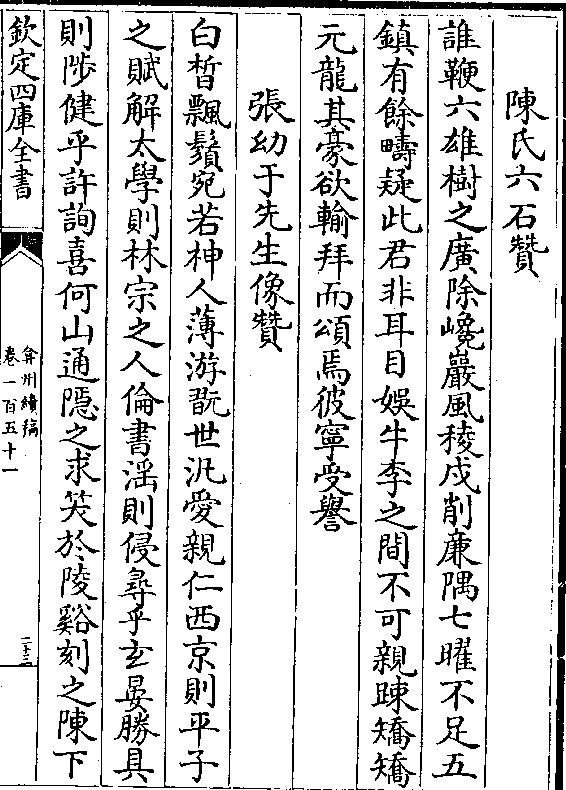 陳氏六石贊
誰鞭六雄樹之廣除巉巖風稜戍削廉隅七曜不足五
鎮有餘疇疑此君非耳目娛牛李之間不可親踈矯矯
元龍其豪欲輸拜而頌焉彼寧受譽
張幼于先生像贊
白皙飄鬚宛若神人薄游翫世汎愛親仁西京則平子
之賦解太學則林宗之人倫書滛則侵尋乎玄晏勝具
則陟健乎許詢喜何山通隱之求笑於陵谿刻之陳下
欽定四庫全書
弇州續稿
卷一百五十一
二十三